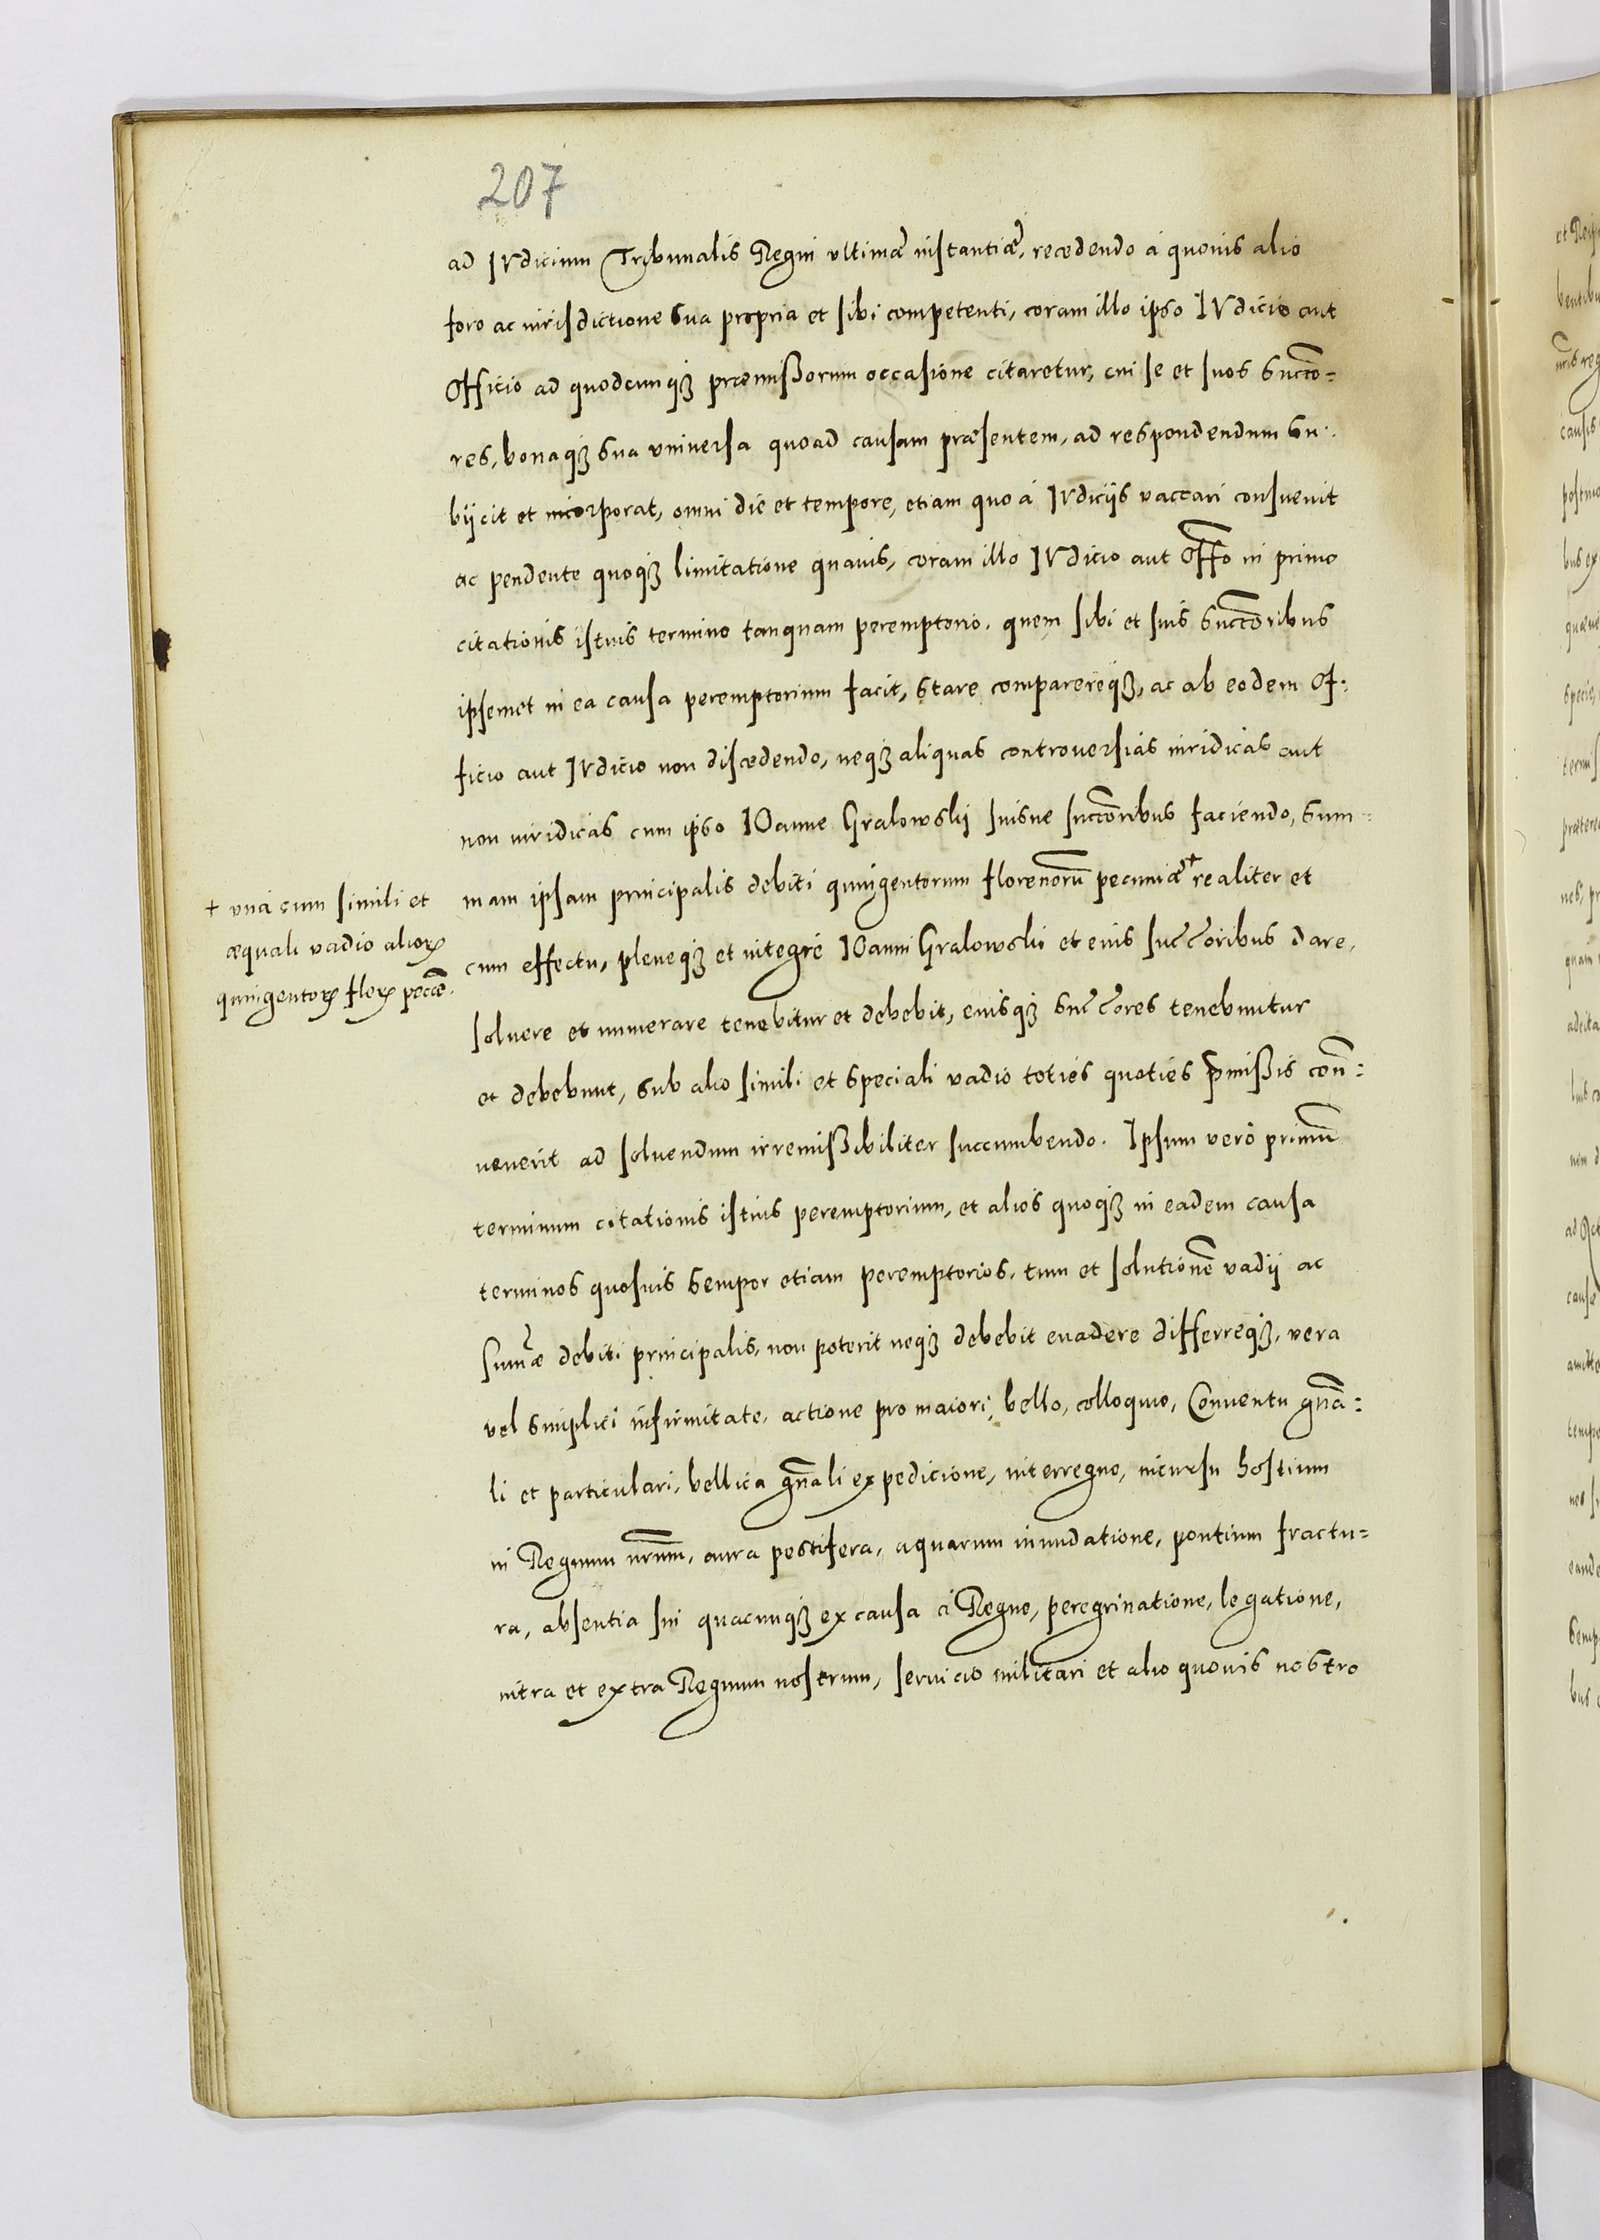 207
ad IVdicium Tribunalis Regni vltimæ instantiæ, recedendo à quouis alio
foro ac iurisdictione sua propria et sibi competenti, coram illo ipso IVdicio aut
Officio ad quodcunqꝫ præmißorum occasione citaretur, cui se et suos succo=
res, bonaqꝫ sua vniuersa quoad causam præsentem, ad respondendum su:
biicit et incorporat, omni die et tempore, etiam quo à IVdiciis vaccari consueuit
ac pendente quoqꝫ limitatione quauis, coram illo IVdicio aut Offo in primo
citationis istius termino tanquam peremptorio, quem sibi et suis succoribus
ipsemet in ea causa peremptorium facit, stare comparereqꝫ, ac ab eodem Of:
ficio aut IVdicio non discedendo, neqꝫ aliquas controuersias iuridicas aut
non iuridicas cum ipso IOanne Gralowskij suisue succoribus faciendo, sum=
mam ipsam principalis debiti quingentorum florenorū pecuniæ + realiter et
+ vnà cum simili et
æquali vadio alioꝝ
quingentoꝝ floꝝ peccæ.
cum effectu, pleneqꝫ et integrè IOanni Gralowski et eius succoribus dare,
soluere et numerare tenebitur et debebit, eiusqꝫ succores tenebuntur
et debebunt, sub alio simili et speciali vadio toties quoties pmißis con̄:
uenerit ad soluendum irremißibiliter succumbendo. Ipsum verò primū
terminum citationis istius peremptorium, et alios quoqꝫ in eadem causa
terminos quosuis semper etiam peremptorios, tum et solutionē vadij ac
sum̄æ debiti principalis, non poterit neqꝫ debebit euadere differreqꝫ, vera
vel simplici infirmitate, actione pro maiori, bello, colloquio, Conuentu gn̄a:
li et particulari, bellica gn̄ali expedicione, interregno, incursu hostium
in Regnum nrūm, aura pestifera, aquarum inundatione, pontium fractu=
ra, absentia sui quacunqꝫ ex causa à Regno, peregrinatione, legatione,
intra et extra Regnum nostrum, seruicio militari et alio quouis nostro